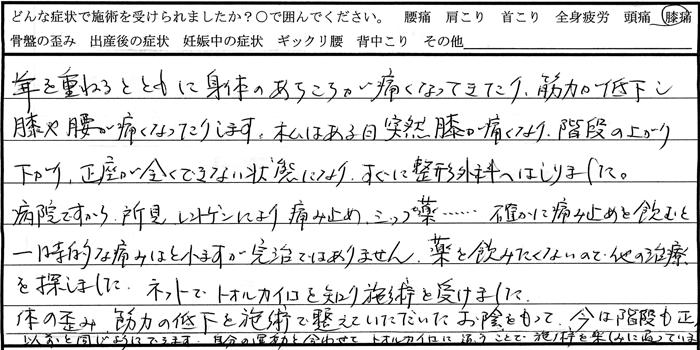 どんな症状で施術を受けられましたか？○で囲んでください。 腰痛 肩こり 首こり 全身疲労 頭痛 膝痛
骨盤の歪み 出産後の症状 妊娠中の症状 ギックリ腰 背中こり その他
年を重ねるとともに身体のあちこちが痛くなってきたり、筋力が低下し
膝や腰が痛くなったりします。私はある日突然膝が痛くなり、階段の上がり
下がり、正座が全くできない状態になり、すぐに整形外科へはしりました。
病院ですから、所見、レントゲンにより痛み止め、シップ薬…… 確かに痛み止めを飲むと
一時的な痛みはとれますが完治ではありません。薬を飲みたくないので他の治療
を探しました。ネットでトオルカイロを知り施術を受けました。
体の歪み、筋力の低下を施術で整えていただいたお陰をもって、今は階段も正
以前と同じようにできます。自分の運動と合わせてトオルカイロに通うことで施術を楽しみに通っている